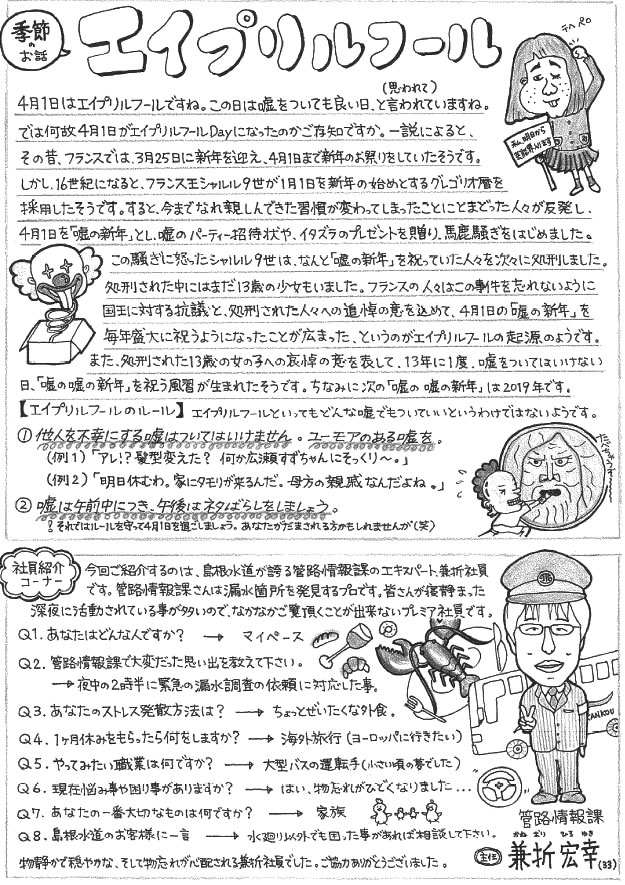 季節のお話
エイプリルフール
テヘペロ
私、明日から芸能界入ります
(思われて)
4月1日はエイプリルフールですね。この日は嘘をついても良い日、と言われていますね。
では何故4月1日がエイプリルフールDayになったのかご存知ですか。一説によると、
その昔、フランスでは、3月25日に新年を迎え、4月1日まで新年のお祭りをしていたそうです。
しかし、16世紀になると、フランス王シャルル9世が1月1日を新年の始めとするグレゴリオ暦を
採用したそうです。すると、今までなれ親しんできた習慣が変わってしまったことにとまどった人々が反発し、
4月1日を「嘘の新年」とし、嘘のパーティー招待状や、イタズラのプレゼントを贈り、馬鹿騒ぎをはじめました。
この騒ぎに怒ったシャルル9世は、なんと「嘘の新年」を祝っていた人々を次々に処刑しました。
処刑された中にはまだ13歳の少女もいました。フランスの人々はこの事件を忘れないように
国王に対する抗議と、処刑された人々への追悼の意を込めて、4月1日の「嘘の新年」を
毎年盛大に祝うようになったことが広まった、というのがエイプリルフールの起源のようです。
また、処刑された13歳の女の子への哀悼の意を表して、13年に1度、嘘をついてはいけない
日、「嘘の嘘の新年」を祝う風習が生まれたそうです。ちなみに次の「嘘の嘘の新年」は2019年です。
【エイプリルフールのルール】 エイプリルフールといってもどんな嘘でもついていいというわけではないようです。
① 他人を不幸にする嘘はついてはいけません。ユーモアのある嘘を。
(例1)「アレ!?髪型変えた? 何か広瀬すずちゃんにそっくり〜。」
(例2)「明日休むわ。家にタモリが来るんだ。母方の親戚なんだよね。」
② 嘘は午前中につき、午後はネタばらしをしましょう。
それではルールを守って4月1日を過ごしましょう。あなたがだまされる方かもしれませんが(笑)
社員紹介コーナー
今回ご紹介するのは、島根水道が誇る管路情報課のエキスパート、兼折社員
です。管路情報課さんは漏水箇所を発見するプロです。皆さんが寝静まった
深夜に活動されている事が多いので、なかなかご覧頂くことが出来ないプレミア社員です。
Q1. あなたはどんな人ですか? → マイペース
Q2. 管路情報課で大変だった思い出を教えて下さい。
→ 夜中の2時半に緊急の漏水調査の依頼に対応した事。
Q3. あなたのストレス発散方法は? → ちょっとぜいたくな外食。
Q4. 1ヶ月休みをもらったら何をしますか? → 海外旅行(ヨーロッパに行きたい)
Q5. やってみたい職業は何ですか? → 大型バスの運転手(小さい頃の夢でした)
Q6. 現在悩み事や困り事がありますか? → はい、物忘れがひどくなりました…
Q7. あなたの一番大切なものは何ですか? → 家族
Q8. 島根水道のお客様に一言 → 水廻り以外でも困った事があれば相談して下さい。
物静かで穏やかな、そして物忘れが心配される兼折社員でした。ご協力ありがとうございました。
KANKOU
管路情報課
かねおり ひろゆき
主任 兼折 宏幸(33)